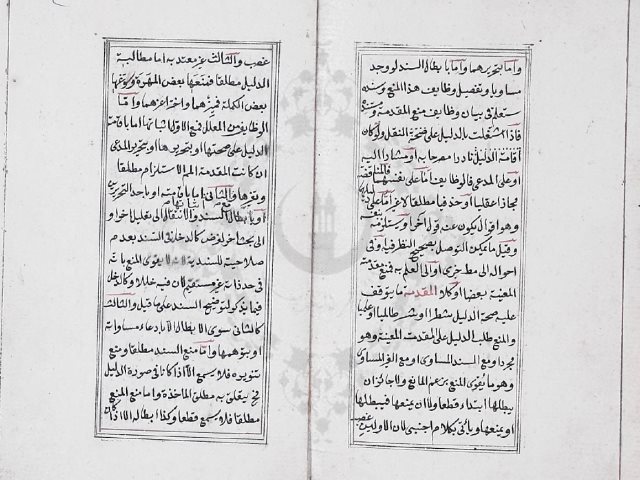 واما بتحريرهما واما بابطال السند لو وجد
مساويا وتفصيل وظايف هذا المنع وسنده
ستعلم في بيان وظايف منع المقدمة وسنده
فاذا اشتغلت بالدليل على صحة النقل ولو كان
اقامة الدليل نادرا مصرحا به او مشارا اليه
او على المدعي فالوظايف اما على نفسهما فالمناقضة
مجازا عقليا او حذفيا مطلقا لاغر اما على
وهو اقوال يكون عنه قول آخر او يستلزمه
وقيل ما يمكن التوصل بصحيح النظر فيه وفي
احواله الى مط خبري او الى العلم به فمنع مقدمة
المعينة بعضا او كلا المقدمة ما يتوقف
عليه صحة الدليل شطرا او شرطا لميا او علميا
والمنع طلب الدليل على المقدمة المعينة وهو
مجردا ومع السند المساوي او مع الغير المساوي
وهو ما يقوى المنع بزعم المانع والجائز ان
يبطلها ابتداء قطعا ولا ان يمنعها فيبطلها
او يمنعها ويأتي بكلام اجنبي لان الاولين غصب
غصب والثالث غير معتد به اما مطالبة
الدليل مطلقا فمنعها بعض المهرة وسوغها
بعض الكملة فميزهما واختر اعزهما واما
الوظايف من المعلل فمع الاول اثباتها اما باقامة
الدليل على صحتها او بتحريرها او بتحرير المدعى
ان كانت المقدمة الميم الاستلزام مطلقا
وبغيرها والثاني اما باقامته او باحد التحريرين
او بابطال السند والانتقال الى تعليل آخر او
الى بحث آخر لغرض كالدخل في السند بعدم
صلاحية للسندية لانه لا يقوى المنع بانه
في حد ذاته غير مستقيم لان فيه خللا وكالدخل
فيما يذكر لتوضيح السند على ما قيل والثالث
كالثاني سوى الابطال الا بادعاء مساواته
او بتوهمها واما منع السند مطلقا ومنع
تنويره فلا يسمع الا اذا كانا في صورة الدليل
فح يتعلق به مطلق المآخذة واما منع المنع
مطلقا فلا يسمع قطعا وكذا ابطاله الا اذا كان